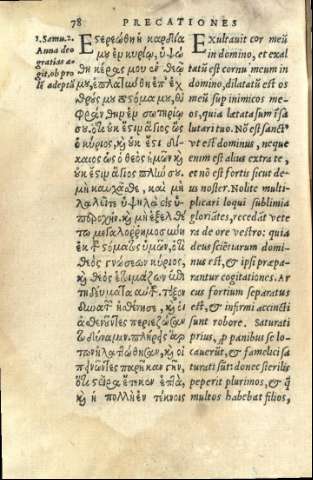 78 PRECATIONES
1. Samu. 2.
Anna deo
gratias a-
git, ob pro
lē adeptā
Εστερεώθη ἡ καρδία
μου ἐν κυρίῳ, ὑψώ
θη κέρας μου ἐν θεῷ
μου, ἐπλατύνθη ἐπ' ἐχ
θρούς μου στόμα μου, εὐ
φράνθην ἐν σωτηρίῳ
σου. ὅτι οὐκ ἔστιν ἅγιος ὡς
ὁ κύριος, καὶ οὐκ ἔστι δί-
καιος ὡς ὁ θεὸς ἡμῶν καὶ
οὐκ ἔστιν ἅγιος πλὴν σου.
μὴ καυχᾶσθε, καὶ μὴ
λαλεῖτε ὑψηλὰ εἰς ὑ-
περοχὴν. καὶ μὴ ἐξελθέ
τω μεγαλορρημοσύνη
ἐκ τοῦ στόματος ὑμῶν, ὅτι
θεὸς γνώσεων κύριος,
καὶ θεὸς ἑτοιμάζων ἐπι
τηδεύματα αὐτοῦ. τόξον
δυνατῶν ἠσθένησε, καὶ οἱ
ἀσθενοῦντες περιεζώσαν
το δύναμιν. πλήρεις ἄρ-
των ἠλαττώθησαν, καὶ οἱ
πεινῶντες παρῆκαν γῆν.
ὅτι στεῖρα ἔτεκεν ἑπτὰ,
καὶ ἡ πολλὴ ἐν τέκνοις
Exultauit cor meū
in domino, et exal
tatū est cornu meum in
domino, dilatatū est os
meū sup inimicos me-
os, quia lætata sum ī sa
lutari tuo. Nō est sanct'
vt est dominus, neque
enim est alius extra te,
et nō est fortis sicut de-
us noster. Nolite multi-
plicari loqui sublimia
gloriātes, recedāt vete
ra de ore vestro: quia
deus sciētiarum domi-
nus est, & ipsi præpa-
rantur cogitationes. Ar
cus fortium separatus
est, & infirmi accincti
sunt robore. Saturati
prius, p panibus se lo-
cauerūt, & famelici sa
turati sūt: donec sterilis
peperit plurimos, & q̄
multos habebat filios,